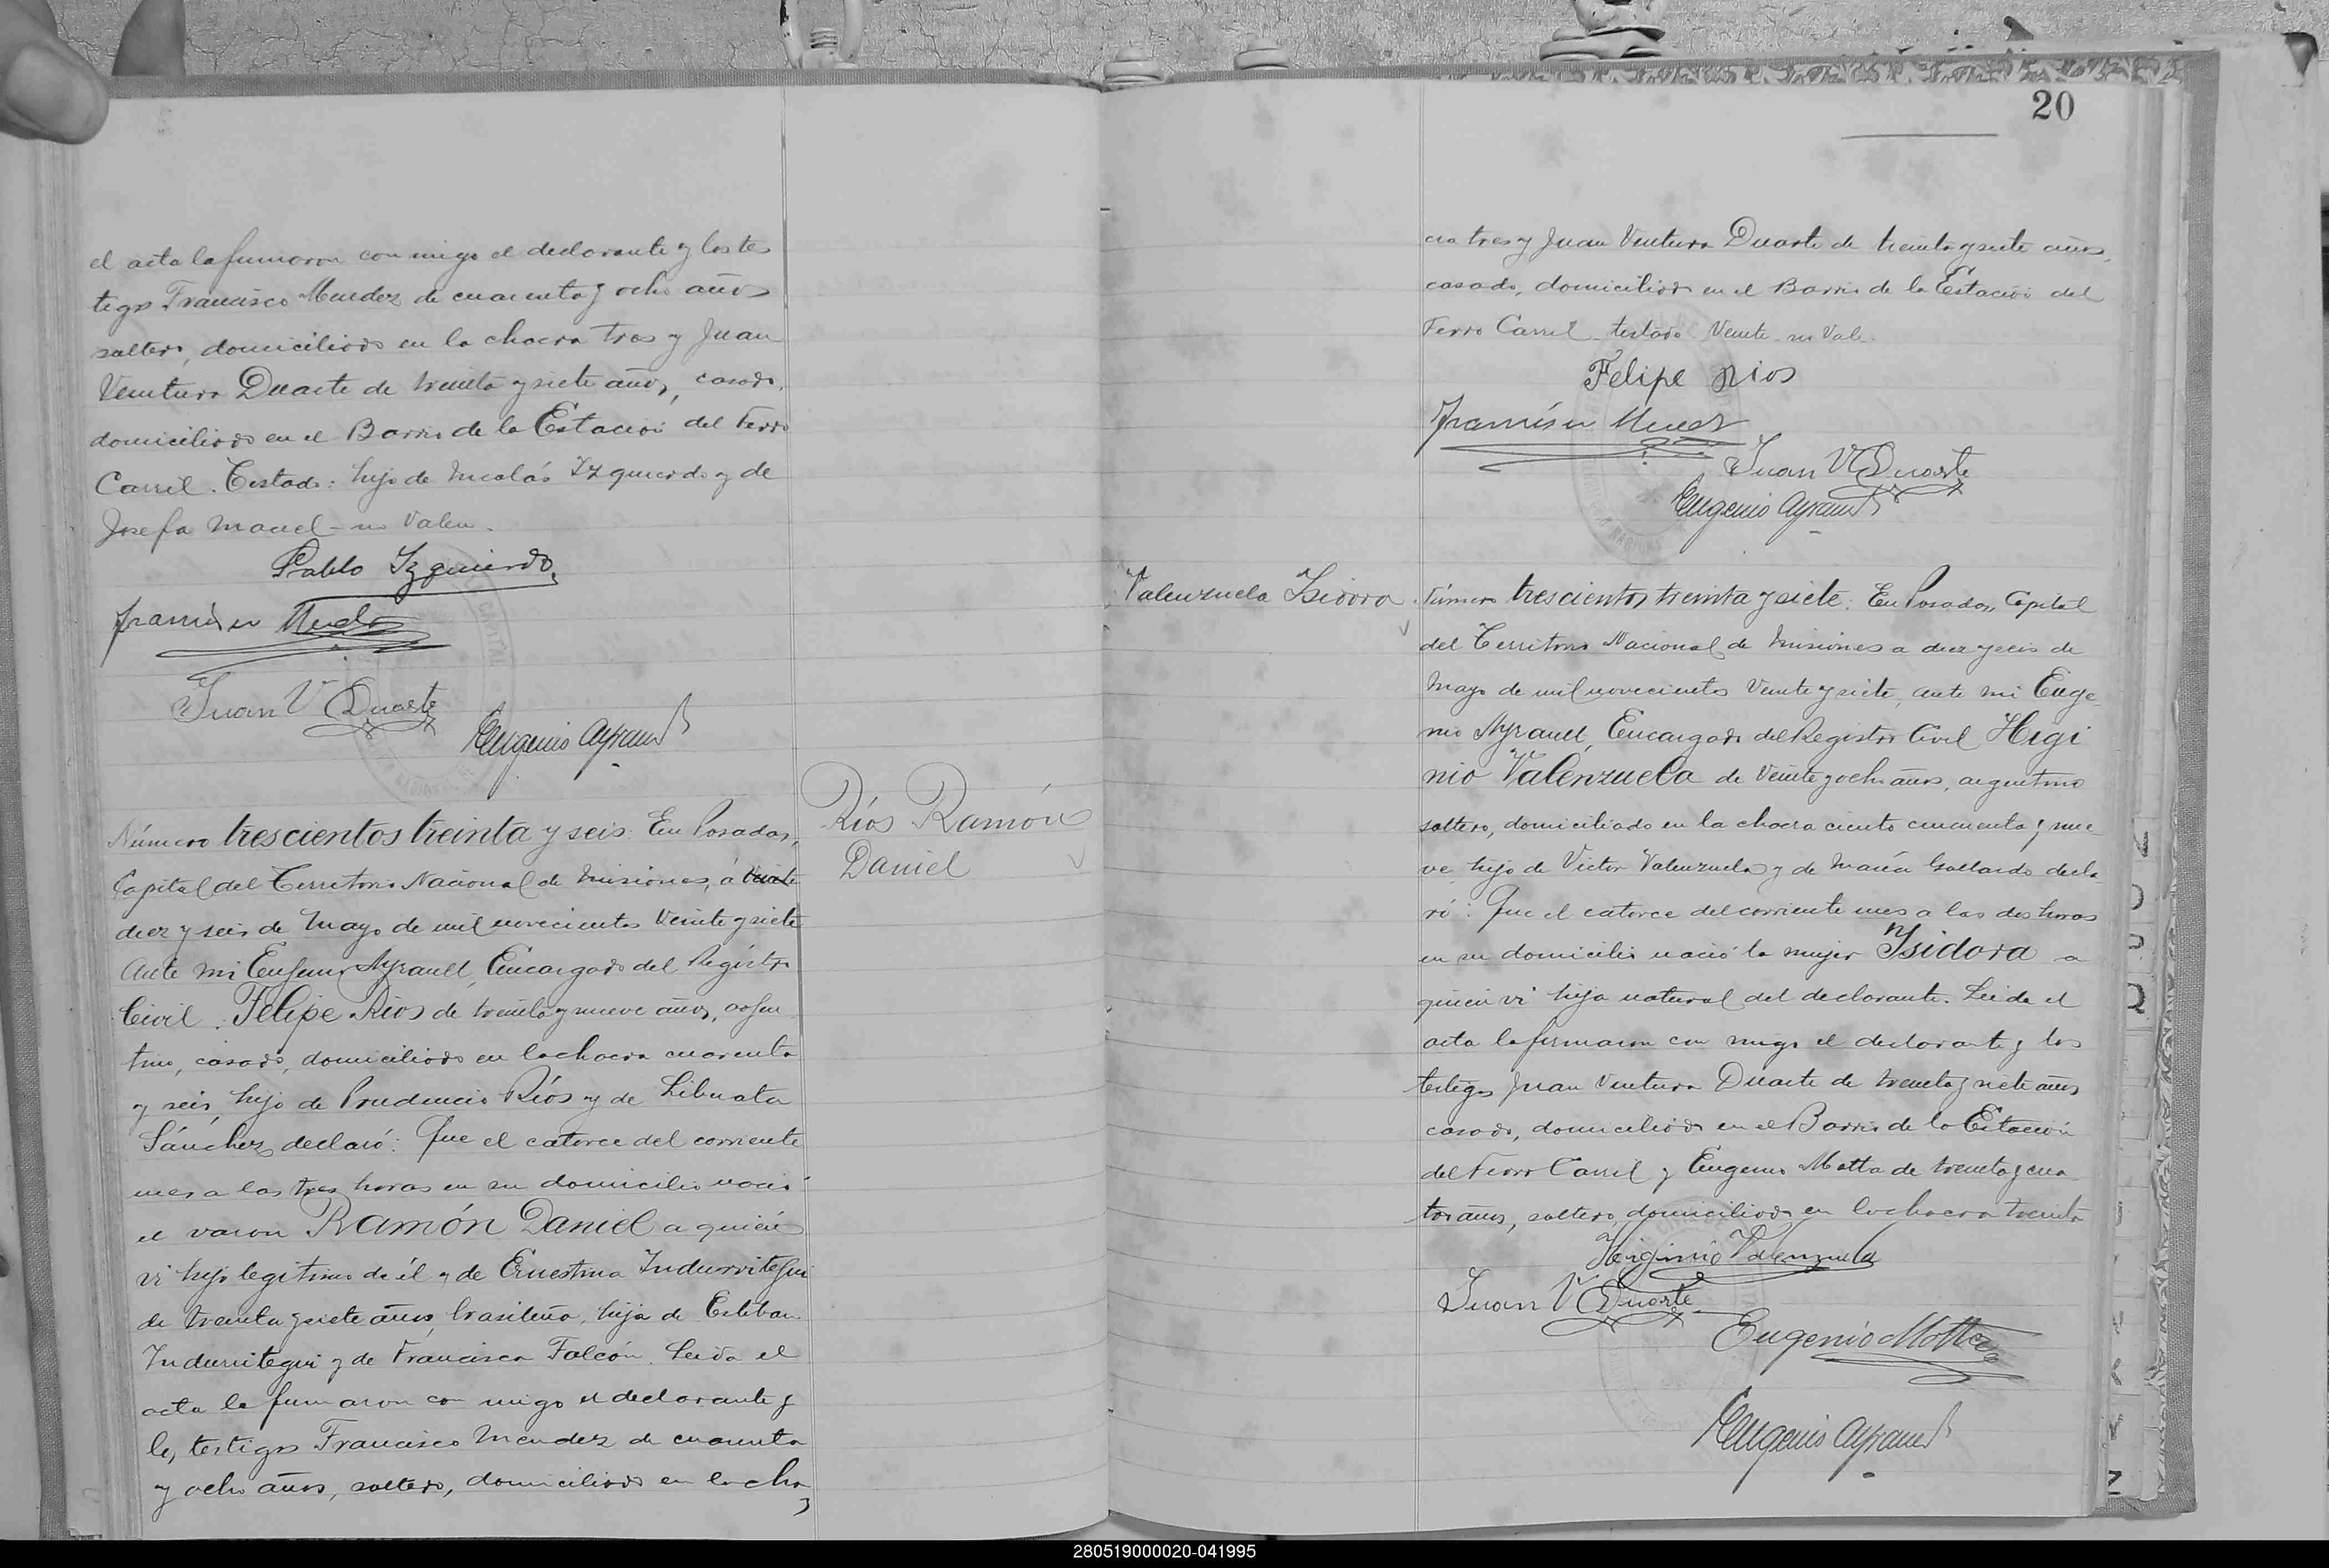 el acta la firmaron con migo el declarante y los tes
tigos Francisco Mendez de cuarenta y ocho años
soltero, domiciliado en la chacra tres y Juan
Ventura Duarte de treinta y siete años, casado,
domiciliado en el Barrio de la Estación del Ferro
Carril. Testado: hijo de Nicolás Yzquierdo y de
Josefa - no valen.
Pablo Izquierdo
Francisco Mendez
Juan V Duarte
Eugenio Ayrault
Número trescientos treinta y seis: En Posadas,
Capital del Territorio Nacional de Misiones, á veinte
diez y seis de Mayo de mil novecientos veinte y siete
Ante mi Eugenio Ayrault, Encargado del Registro
Civil: Felipe Rios de treinta y nueve años, argen
tino, casado, domiciliado en la chacra cuarenta
y seis, hijo de Prudencio Ríos y de Liberata
Sánchez, declaró: Que el catorce del corriente
mes a las tres horas en su domicilio nació
el varon Ramón Daniel a quien
vi hijo legitimo de él y de Ernestina Indurritegui
de treinta y siete años, brasileña, hija de Esteban
Indurritegui y de Francisca Falcón. Leida el
acta la firmaron con migo el declarante y
los testigos Francisco Mendez de cuarenta
y ocho años, soltero, domiciliado en la cha
Ríos Ramón
Daniel
20
cra tres y Juan Ventura Duarte de treinta y siete años,
casado, domiciliado en el Barrio de la Estación del
Ferro Carril - testado Veinte - no Vale.
Felipe Rios
Francisco Mendez
Juan V Duarte
Eugenio Ayrault
Valenzuela Isidora
Número trescientos treinta y siete: En Posadas, Capital
del Territorio Nacional de Misiones a diez y seis de
Mayo de mil novecientos veinte y siete, ante mi Euge
nio Ayrault, Encargado del Registro Civil Higi
nio Valenzuela de veinte y ocho años, argentino
soltero, domiciliado en la chacra ciento cincuenta y nue
ve, hijo de Victor Valenzuela y de María Gallardo decla
ró: Que el catorce del corriente mes a las dos horas
en su domicilio nació la mujer Ysidora a
quien vi hija natural del declarante. Leida el
acta la firmaron con migo el declarante y los
testigos Juan Ventura Duarte de treinta y siete años
casado, domiciliado en el Barrio de la Estación
del Ferro Carril y Eugenio Motta de treinta y cua
tro años, soltero, domiciliado en la chacra treinta
Higinio Valenzuela
Juan V Duarte
Eugenio Motta
Eugenio Ayrault
280519000020-041995